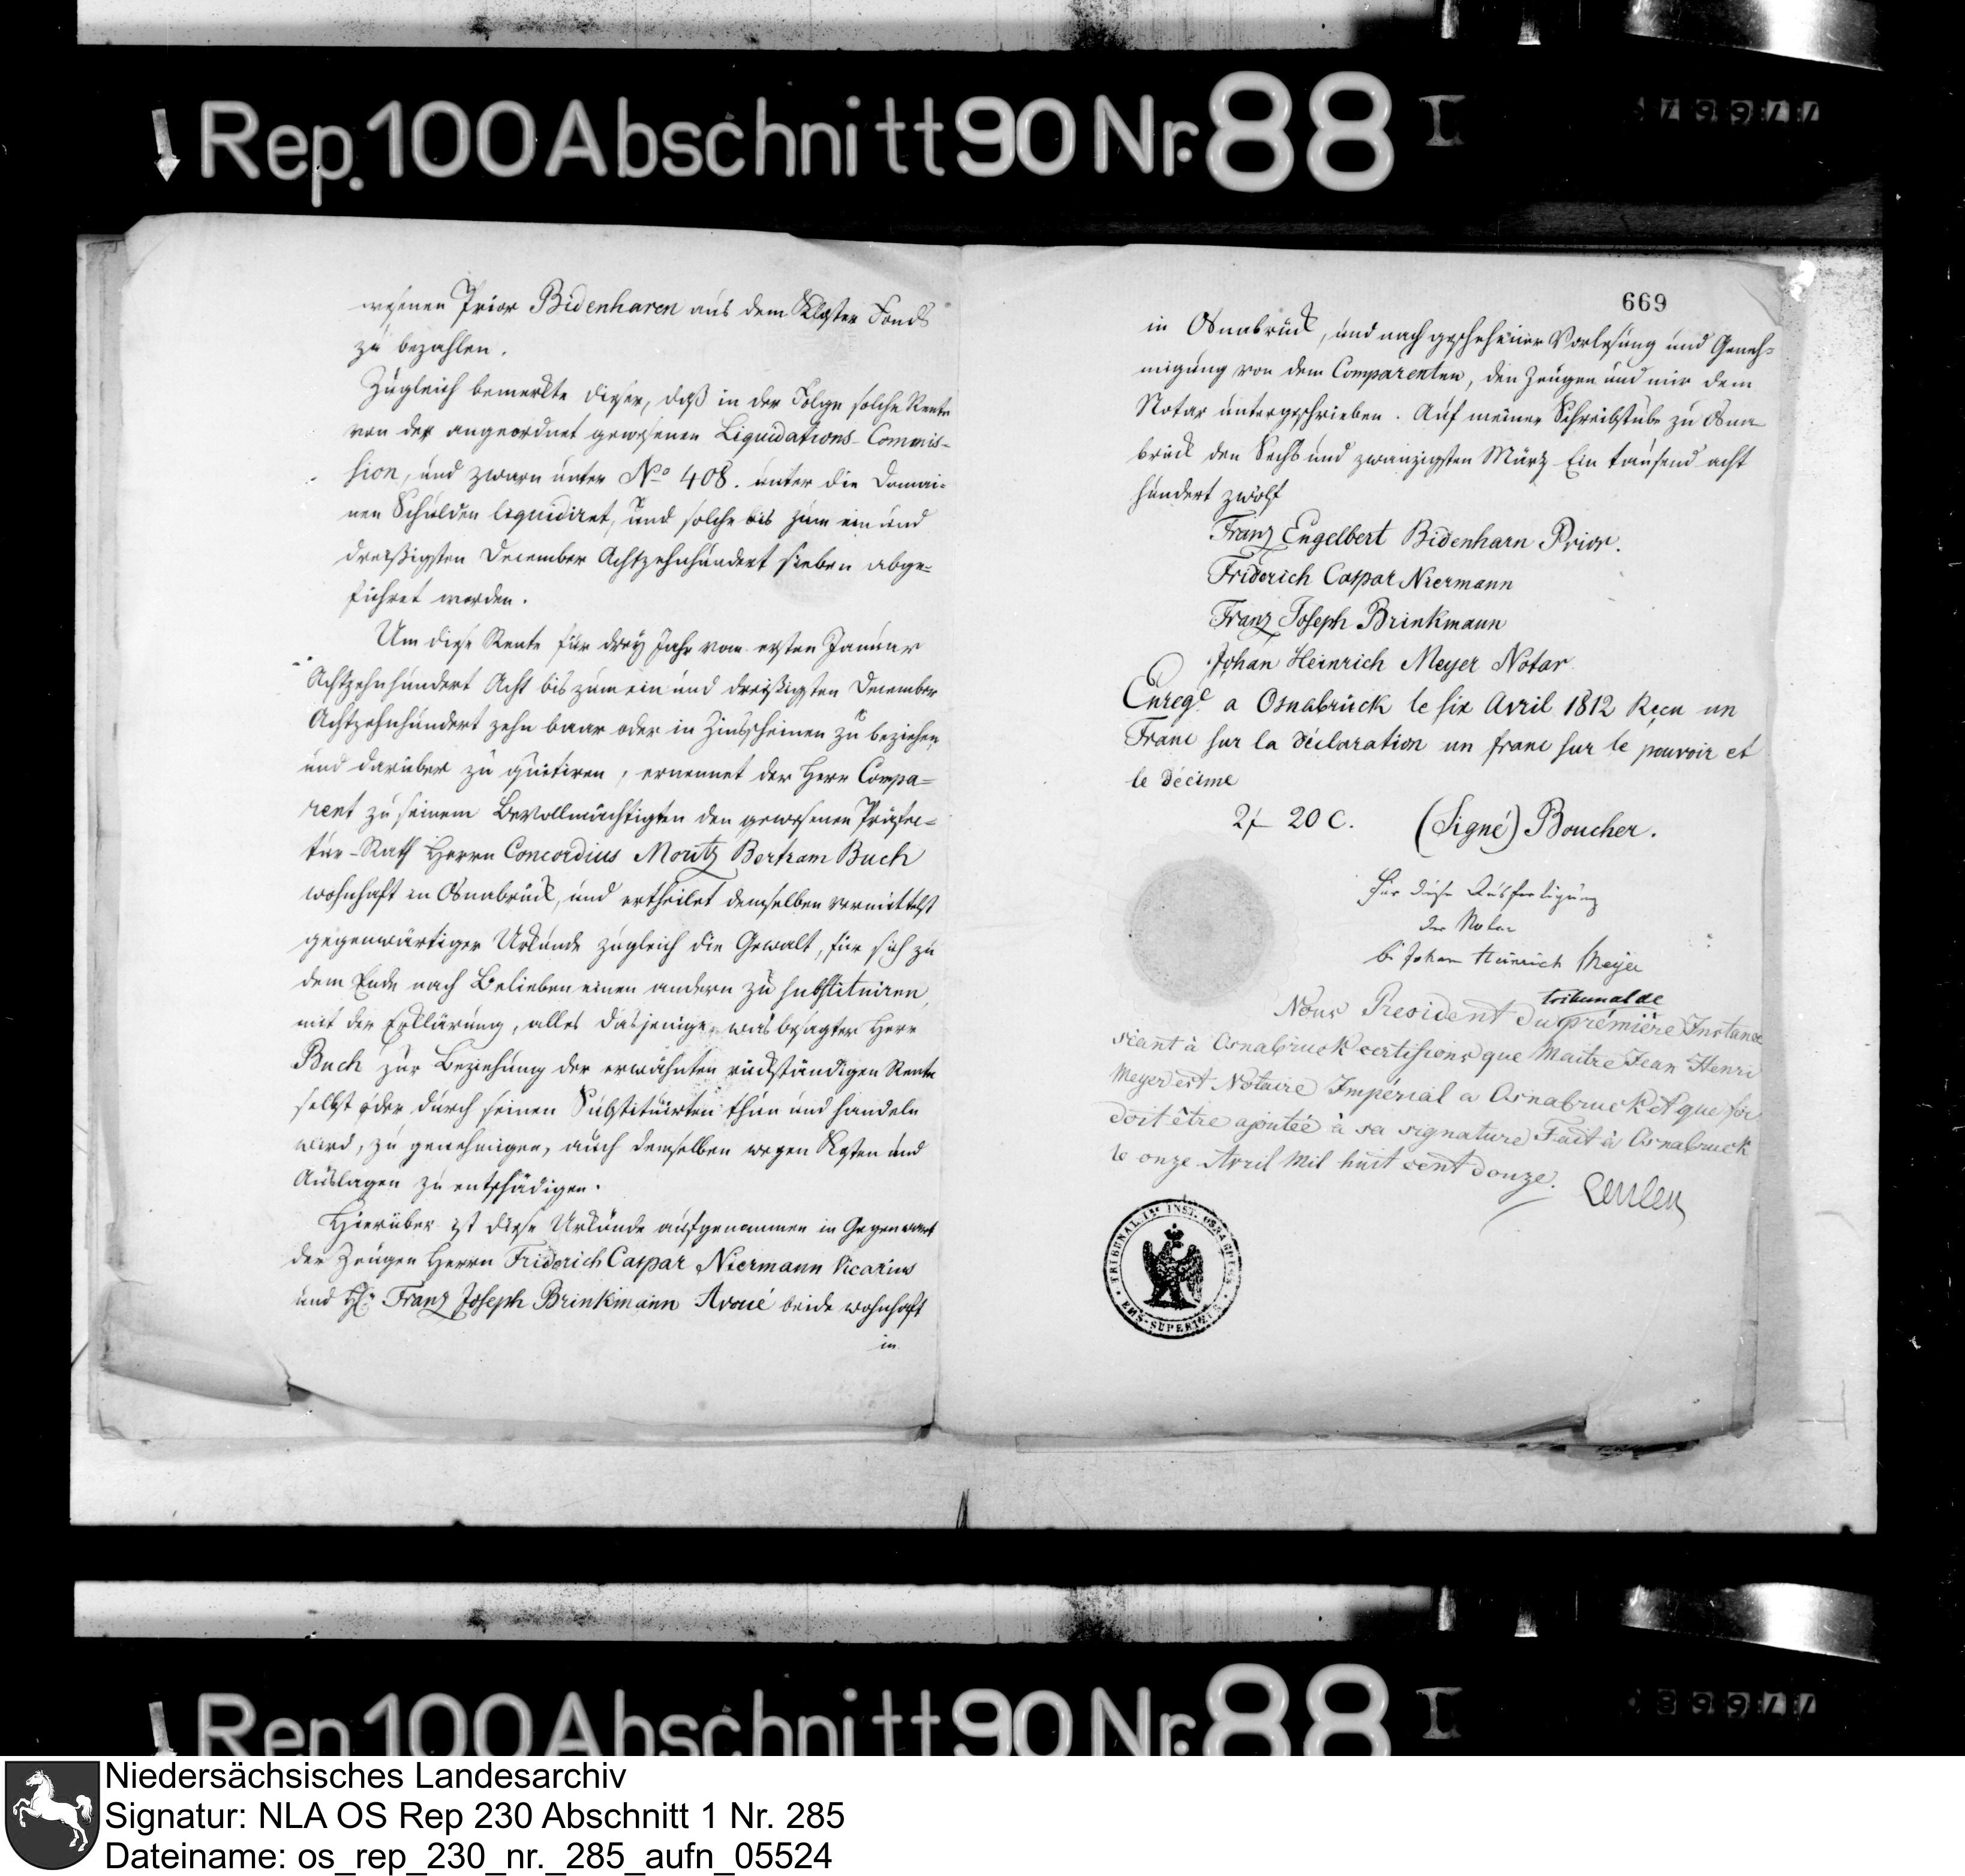 Rep. 100 Abschnitt 90 Nr. 88 I
wesenen Prior Bidenharen aus dem Kloster Fonds
zu bezahlen.
Zugleich bemerkte dieser, daß in der Folge solche Rente
von der angeordnet gewesenen Liquidations-Commis-
sion, und zwarn unter No 408. unter die Domai-
nen Schulden liquidiret, und solche bis zum ein und
dreißigsten December Achtzehnhundert sieben abge-
führet worden.
Um diese Rente für drey Jahr vom ersten Januar
Achtzehnhundert Acht bis zum ein und dreißigsten December
Achtzehnhundert zehn baar oder in Zinsscheinen zu beziehen
und darüber zu quitiren, ernennet der Herr Compa-
rent zu seinem Bevollmächtigten den gewesenen Präfec-
tur-Rath Herrn Concordius Moritz Bertram Buch
wohnhaft in Osnabrück, und ertheilet demselben vermittelst
gegenwärtiger Urkunde zugleich die Gewalt, für sich zu
dem Ende nach Belieben einen andern zu substituiren,
mit der Erklärung, alles dasjenige was besagter Herr
Buch zur Beziehung der erwähnten rückständigen Rente
selbst oder durch seinen Substituirten thun und handeln
wird, zu genehmigen, auch demselben wegen Kosten und
Auslagen zu entschädigen.
Hierüber ist diese Urkunde aufgenommen in Gegenwart
der Zeugen Herrn Friderich Caspar Niermann Vicarius
und Hr. Franz Joseph Brinkmann Avoué beide wohnhaft
in
669
in Osnabrück, und nach geschehener Vorlesung und Geneh-
migung von dem Comparenten, den Zeugen und mir dem
Notar unterschrieben. Auf meiner Schreibstube zu Osna-
brück den Sechs und zwanzigsten März Ein tausend acht
hundert zwölf
Franz Engelbert Bidenharn Prior.
Friderich Caspar Niermann
Franz Joseph Brinkmann
Johan Heinrich Meyer Notar
Enregé a Osnabrück le six Avril 1812 Reçu un
Franc sur la déclaration un franc sur le pouvoir et
le décime
2f 20 C. (Signé) Boucher.
Für diese Ausfertigung
der Notar
Johan Heinrich Meyer
tribunal de
Nous President du première Instance
séant à Osnabruck certifions que Maitre Jean Henri
Meyer est Notaire Impérial a Osnabruck et que foi
doit être ajoutée à sa signature Fait à Osnabruck
le onze Avril Mil huit cent douze.
TRIBUNAL
EMS-SUPERIEUR
Rep. 100 Abschnitt 90 Nr. 88 I
Niedersächsisches Landesarchiv
Signatur: NLA OS Rep 230 Abschnitt 1 Nr. 285
Dateiname: os_rep_230_nr._285_aufn_05524